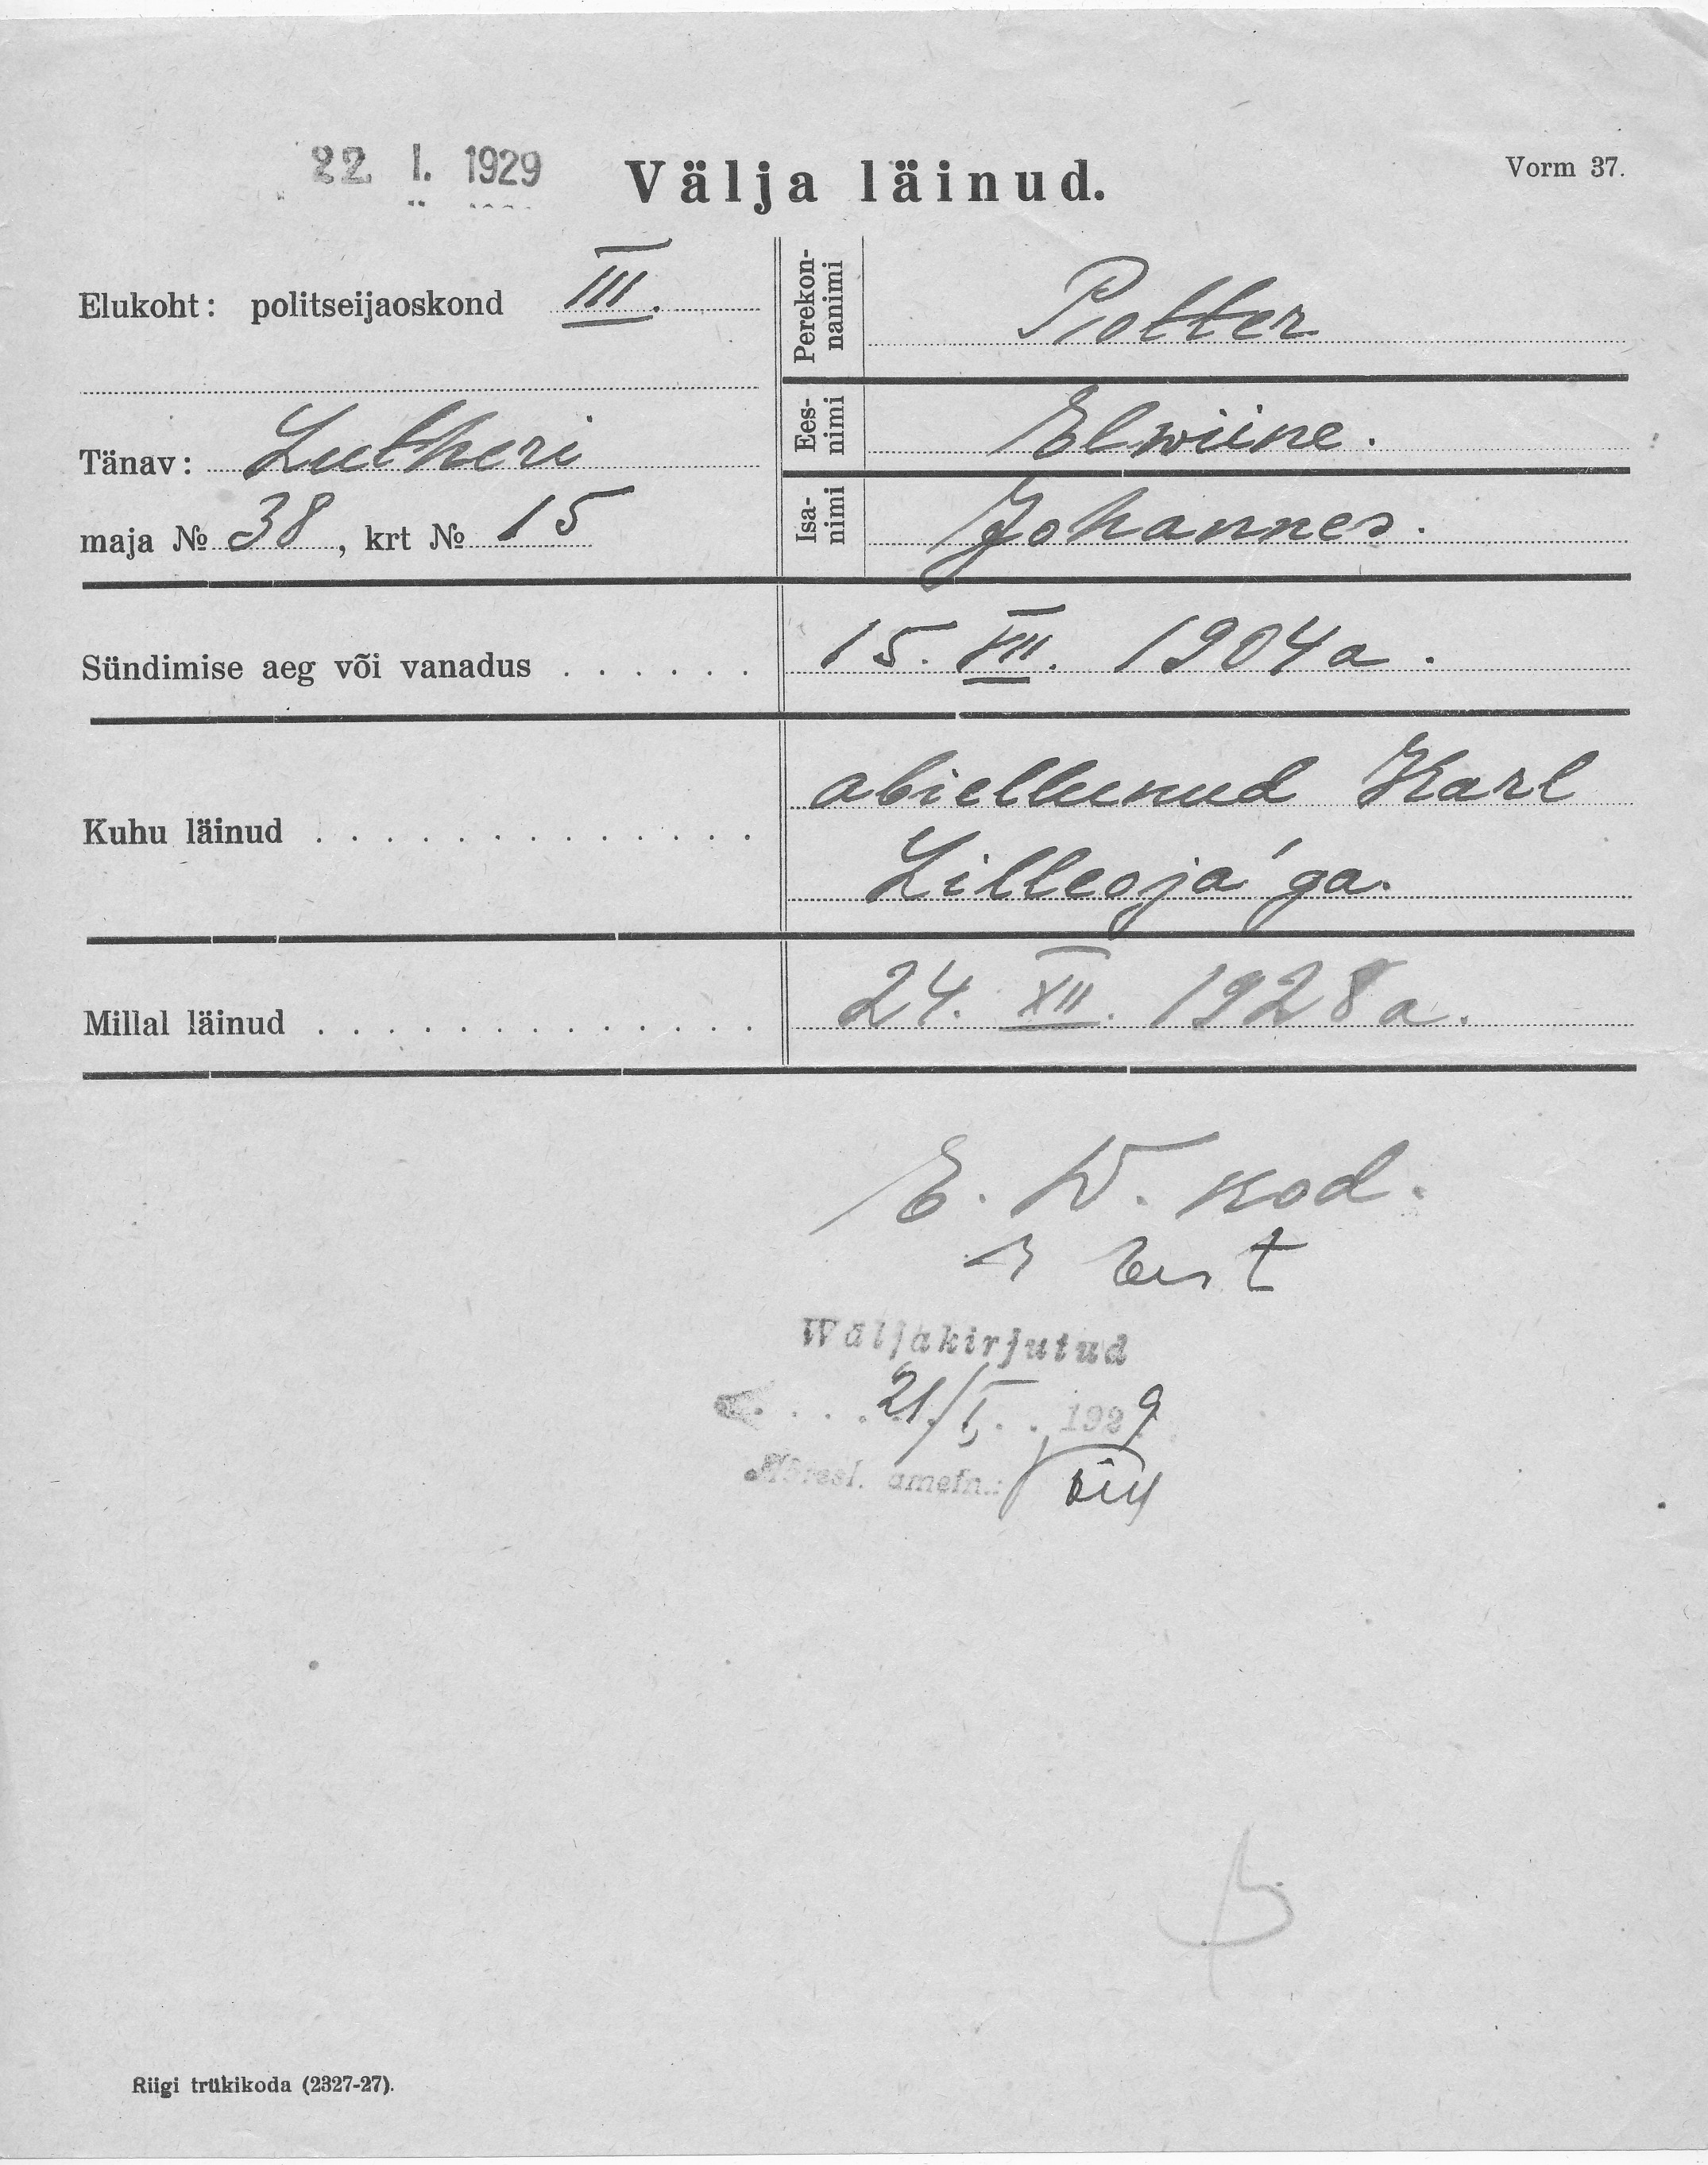 22. I. 1929
Välja läinud.
Vorm 37.
Elukoht: politseijaoskond III.
Tänav: Lutheri
maja № 38, krt № 15
Perekon-
nanimi
Potter
Ees-
nimi
Elwiine.
Isa-
nimi
Johannes.
Sündimise aeg või vanadus . . . . . . 15. VII. 1904 a.
Kuhu läinud . . . . . . . . . . . . . .
abiellunud Karl
Lilleoja'ga.
Millal läinud . . . . . . . . . . . . . . 24. XII. 1928 a.
E. W. kod.
Wäljakirjutud
21/I. 1929
ametn.:
Riigi trükikoda (2327-27).